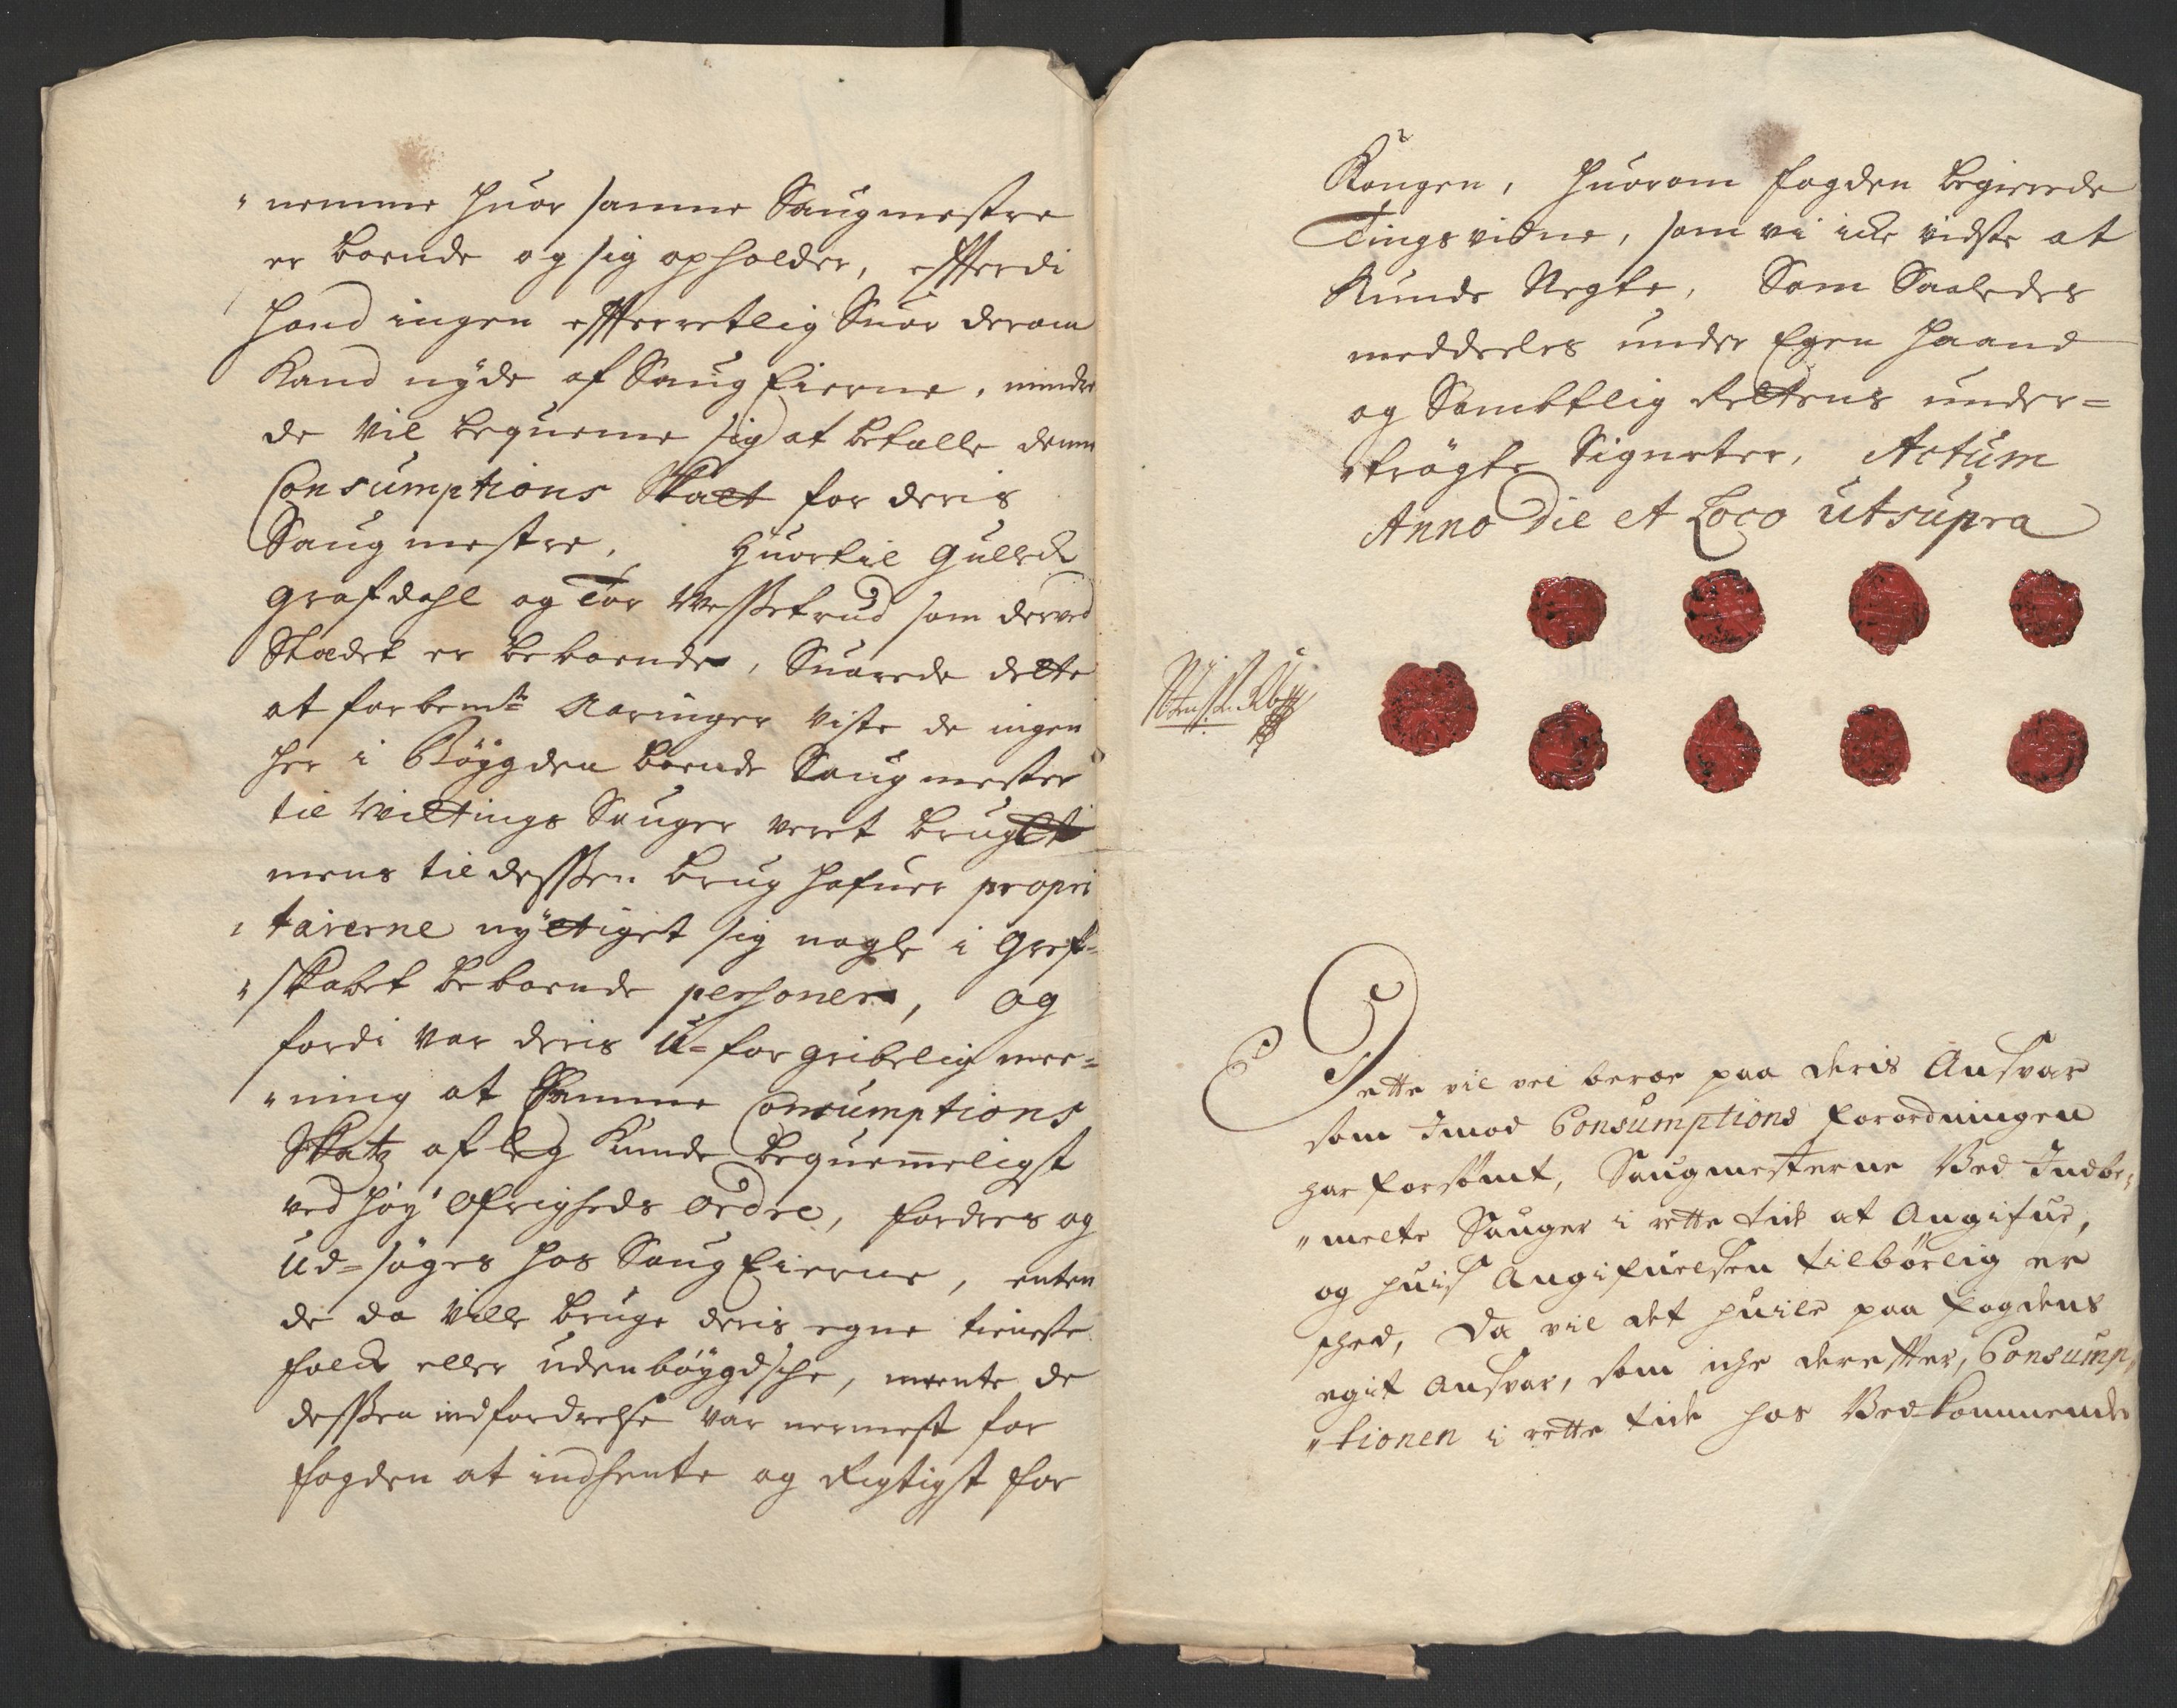 "nemme huor samme Saugmestre
er boende og sig opholder, effterdi
hand ingen effterretlig Suar derom
Kand nyde af Saug Eierne, mindre
de vil bequeme sig at betalle denne
Consumptions Skatt for deris
Saug mestre, Huortil Gullich
Grafdahl og Tor Wessetrud som derved
Stædet er beboende, Suarede dette
at forbemte Aaringer viste de ingen
her i Bøygden boende Saugmester
til Wiltings Sauger veret brugt
mens til dessen brug hafuer propri
"tairerne nyttiget sig nogle i Gref-
"skabet beboende personer, og
fordi var deris U-forgribelig mee-
"ning at samme Consumptions
Skatz afleg kunde bequemeligst
ved høy Øfrigheds ordre, fordres og
Ud-søges hos Saug Eierne, enten
de da ville bruge deris egne tieneste
folck eller udenbøygdsche, meente de
dessen indfordrelse var nermest for
fogden at indhente og Rigtigst for
Kongen, huorom fogden begierede
Tingsvidne, som vi icke vidste at
Kunde Negte, Som Saaledes
meddeeles under Egen haand
og Sambtlig Rettens under-
"trøgte Signeter, Actum
Anno Die et Loco ut supra
Dette vil vel beroe paa deris Ansvar
som Imod Consumptions forordningen
har forsømt, Saugmesterne Ved Indbe-
"melte Sauger i rette tide at Angifue,
og huis Angifuelsen tilbørlig er
skeed, Da vil det huile paa fogdens
eget Ansvar, som iche derefter, Consump
"tionen i rette tide hos Vedkommende